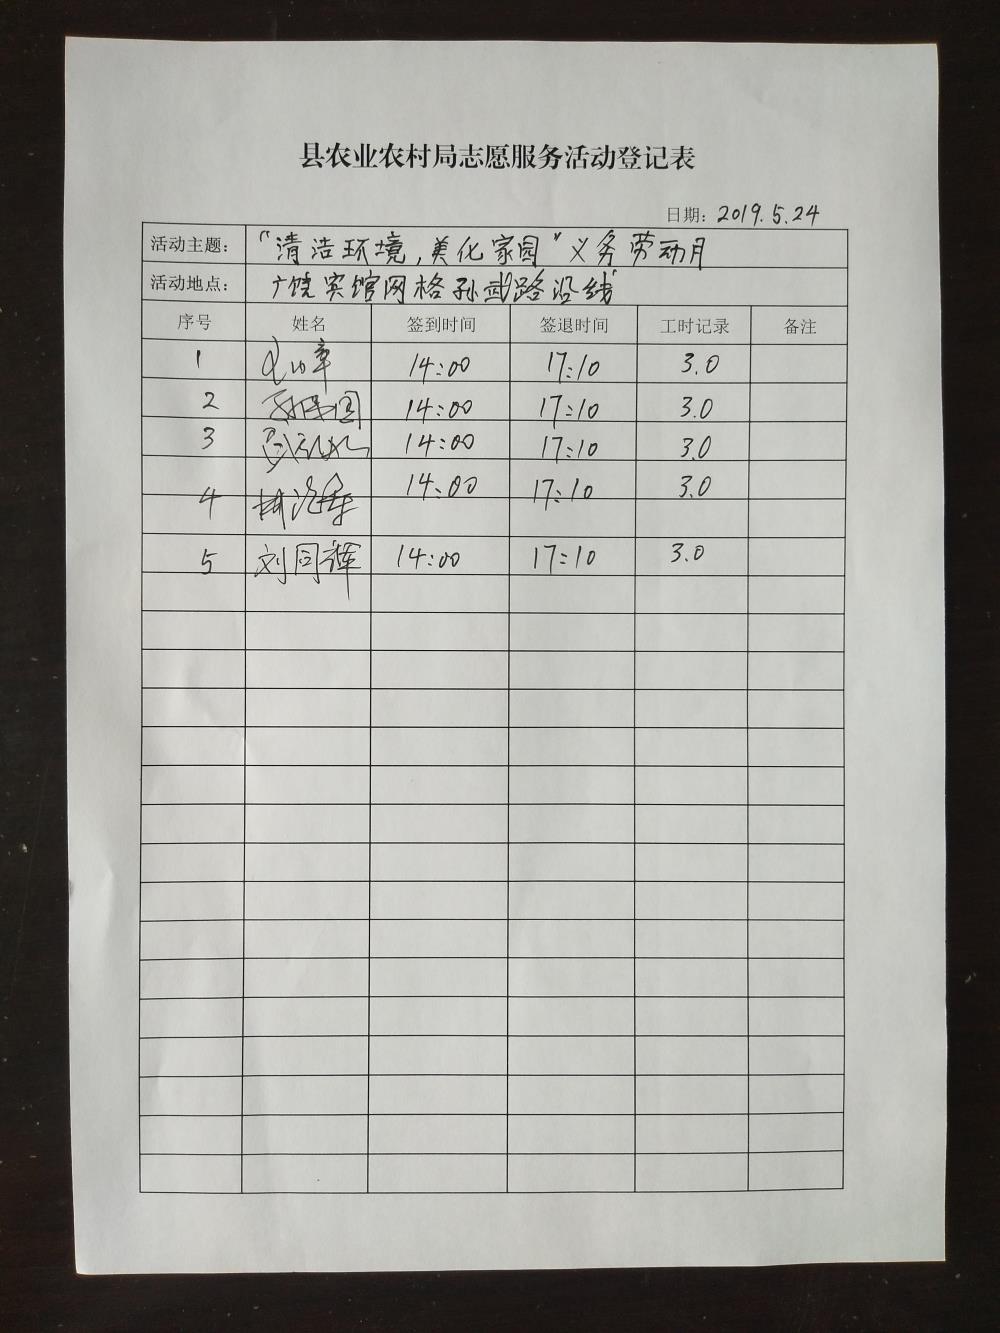 县农业农村局志愿服务活动登记表
日期: 2019.5.24
活动主题: “清洁环境,美化家园”义务劳动月
活动地点: 广饶宾馆网格孙武路沿线
序号 姓名 签到时间 签退时间 工时记录 备注
1 14:00 17:10 3.0
2 14:00 17:10 3.0
3 14:00 17:10 3.0
4 14:00 17:10 3.0
5 刘同辉 14:00 17:10 3.0